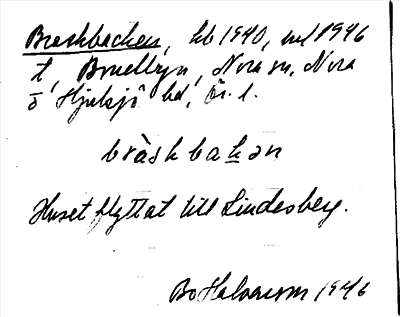 Braskbacken, hb 1940, url 1946
t, Bruellyn, Nora sn, Nora
o Hjulsjö bd, Ör. l.
bràskbakan
Huset flyttat till Lindesberg.
Bo Halvarson 1946